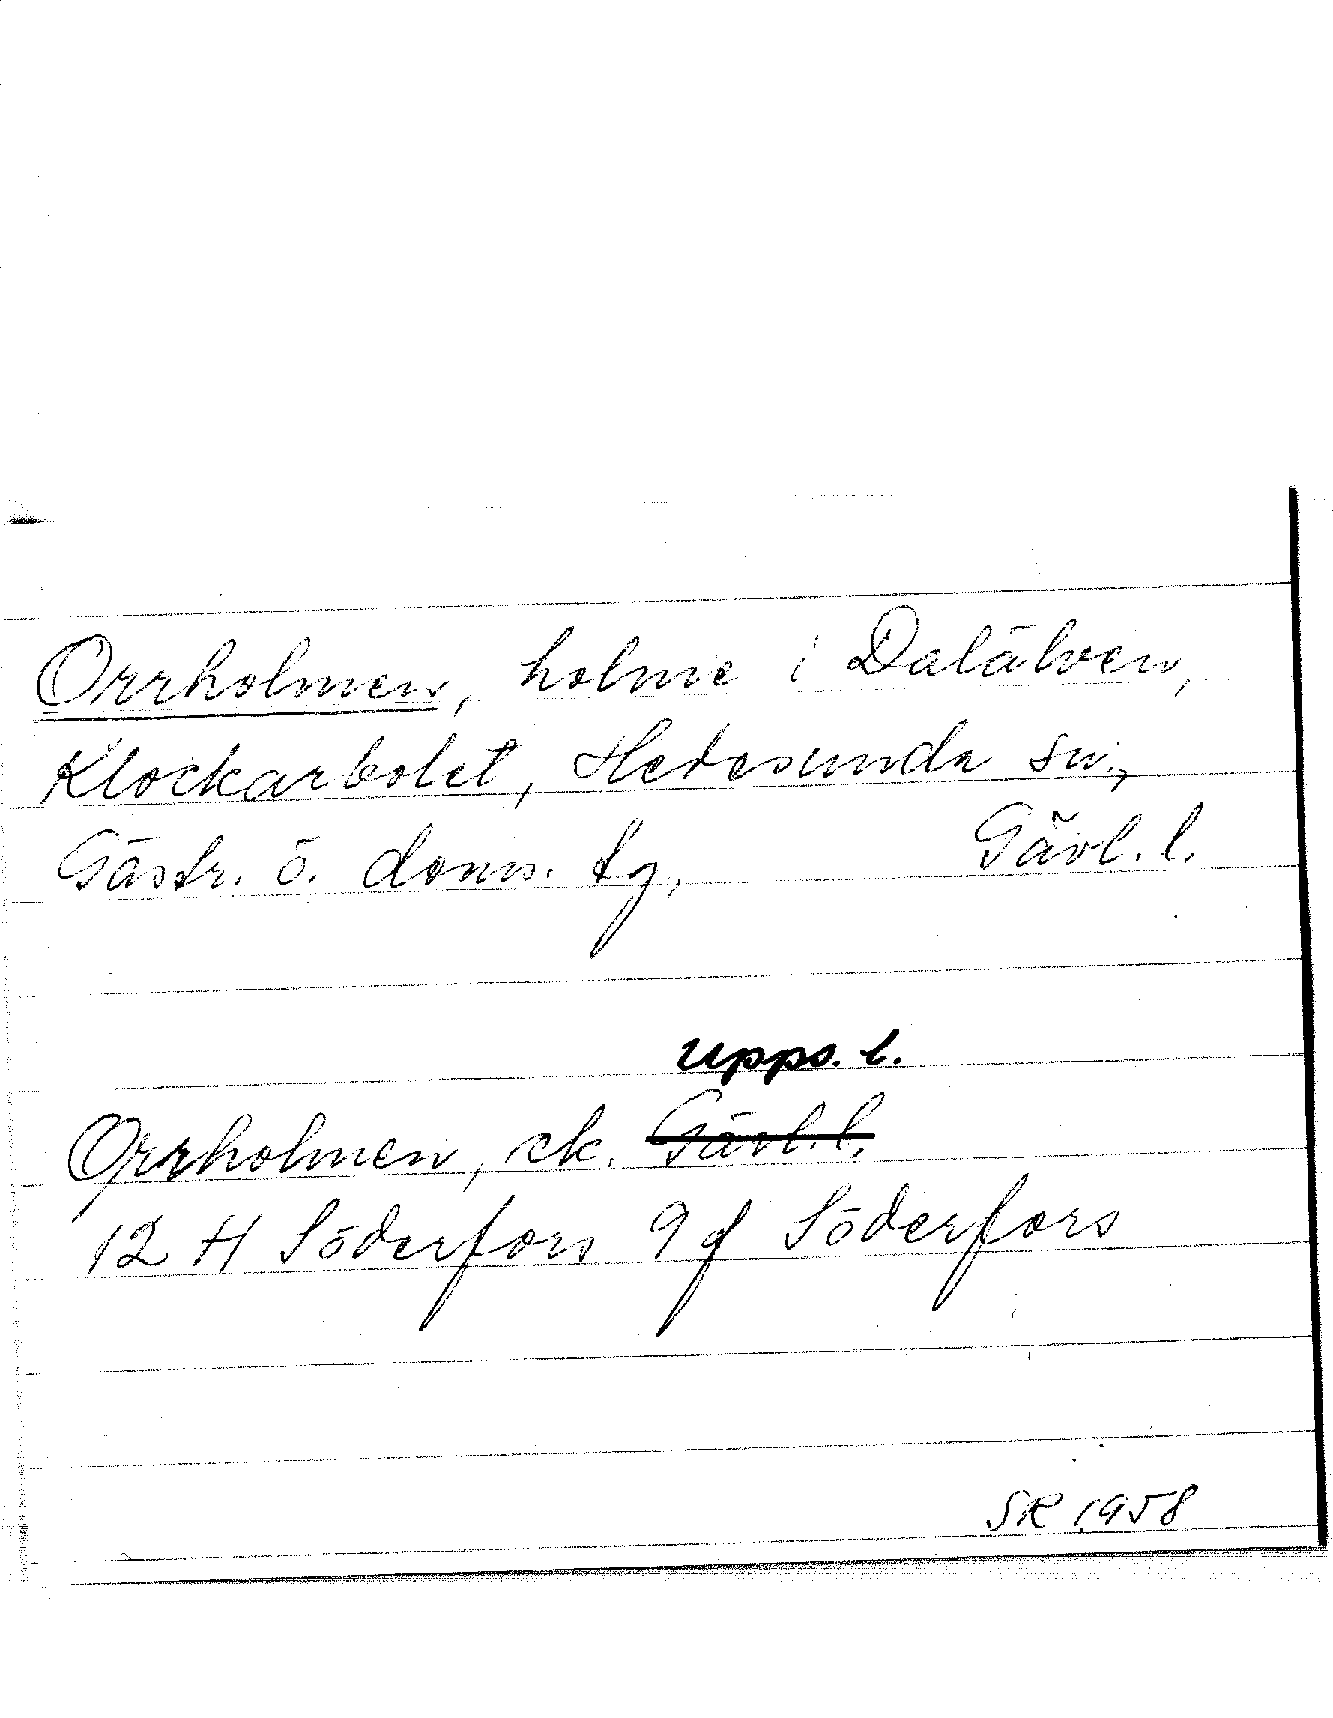 Orrholmen, holme i Dalälven,
Klockarbolet, Hedesunda sn.,
Gästr. ö. doms. tg, Gävl. l.
Upps. l.
Orrholmen, ek. Gävl. l.
12 H Söderfors 9 f Söderfors
SR 1958